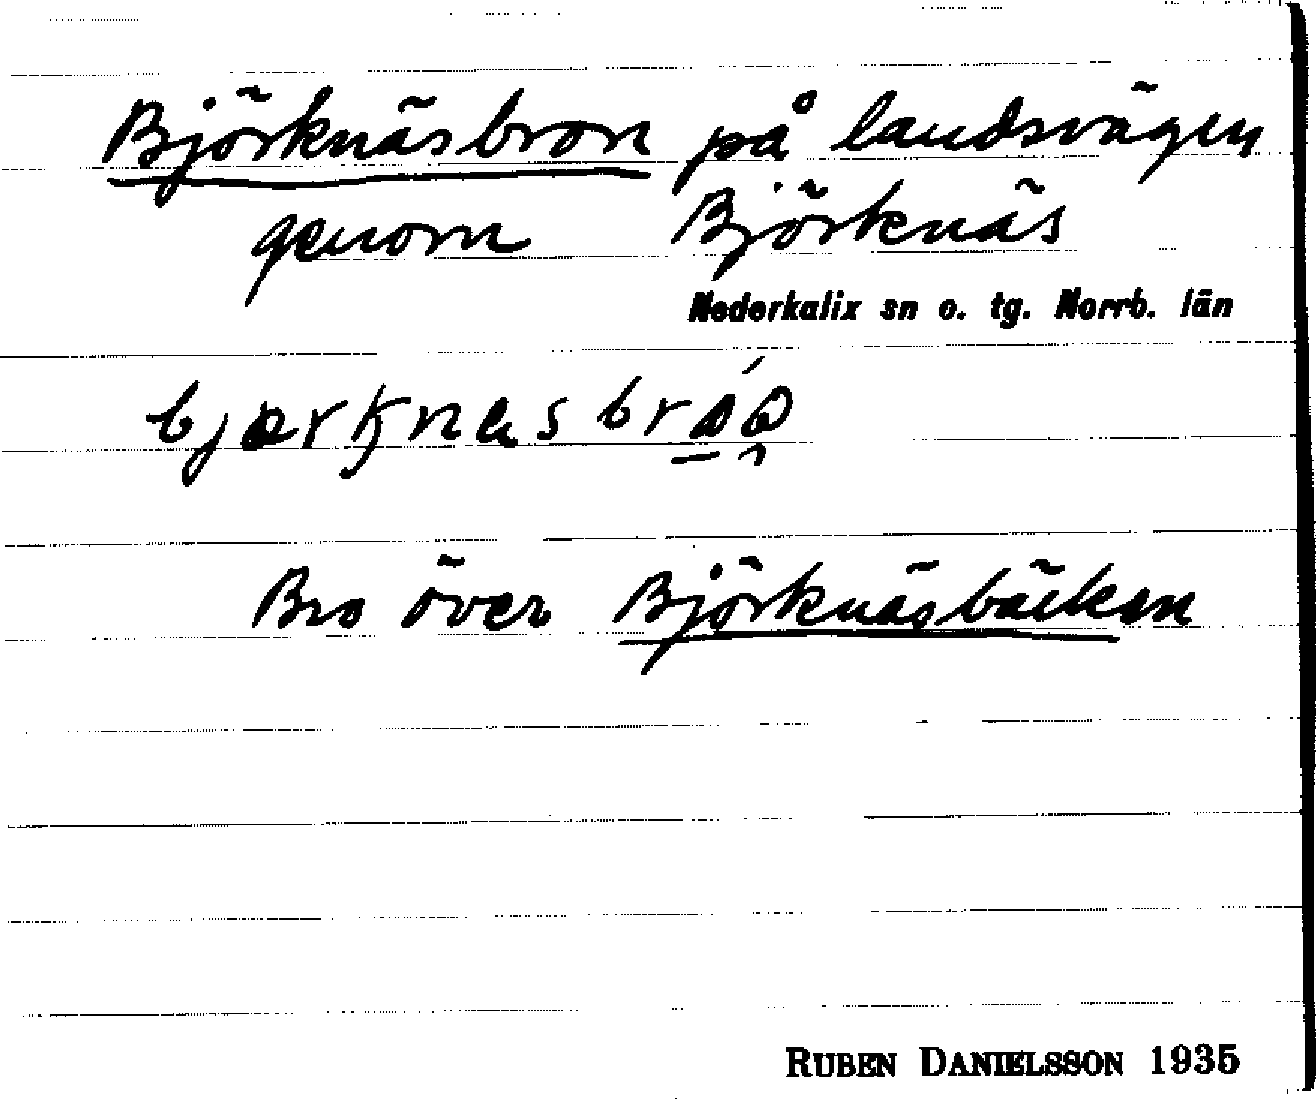 Björknäsbron på landsvägen
genom Björknäs
Nederkalix sn o. tg. Norrb. län
Bro över Björknäsbäcken
RUBEN DANIELSSON 1935